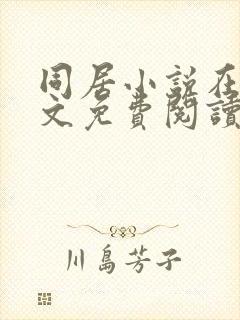 同居小説在
文免費閱讀
川島芳子